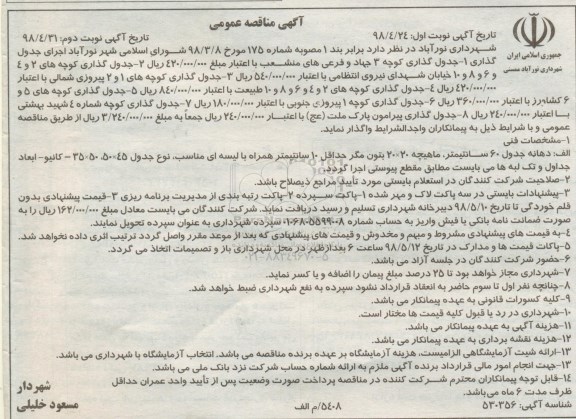 آگهی مناقصه عمومی
تاریخ آگهی نوبت اول: ۹۸/۴/۲۴
تاریخ آگهی نوبت دوم: ۹۸/۴/۳۱
جمهوری اسلامی ایران
شهرداری نورآباد ممسنی
شهرداری نورآباد در نظر دارد برابر بند ۱ مصوبه شماره ۱۷۵ مورخ ۹۸/۳/۸ شورای اسلامی شهر نورآباد اجرای جدول
گذاری ۱-جدول گذاری کوچه ۳ جهاد و فرعی های منشعب با اعتبار مبلغ ۴۲۰/۰۰۰/۰۰۰ ریال ۲-جدول گذاری کوچه های ۲ و ۴
و ۶ و ۸ و ۱۰ خیابان شهدای نیروی انتظامی با اعتبار ۵۴۰/۰۰۰/۰۰۰ ریال ۳-جدول گذاری کوچه های ۱ و ۲ پیروزی شمالی با اعتبار
۴۲۰/۰۰۰/۰۰۰ ریال ۴-جدول گذاری کوچه های ۲ و ۴ و ۶ و ۸ و ۱۰ طبیعت با اعتبار ۸۴۰/۰۰۰/۰۰۰ ریال ۵-جدول گذاری کوچه های ۵ و
۶ کشاورز با اعتبار ۳۶۰/۰۰۰/۰۰۰ ریال ۶-جدول گذاری کوچه ۱ پیروزی جنوبی با اعتبار ۱۸۰/۰۰۰/۰۰۰ ریال ۷-جدول گذاری کوچه شماره ۴ شهید بهشتی
با اعتبار ۲۴۰/۰۰۰/۰۰۰ ریال ۸-جدول گذاری پیرامون پارک ملت (عج) با اعتبار ۲۴۰/۰۰۰/۰۰۰ ریال جمعاً به مبلغ ۳/۲۴۰/۰۰۰/۰۰۰ ریال از طریق مناقصه
عمومی و با شرایط ذیل به پیمانکاران واجدالشرایط واگذار نماید.
۱-مشخصات فنی
الف: دهانه جدول ۶۰ سانتیمتر، ماهیچه ۲۰-۲۰ بتون مگر حداقل ۱۰ سانتیمتر همراه با لیسه ای مناسب، نوع جدول ۴۵-۵۰-۳۵-۵۰ - کانیو- ابعاد
جداول و تک لبه ها می بایست مطابق مقطع پیوستی اجرا گردد.
۲-صلاحیت شرکت کنندگان در استعلام بایستی مورد تأیید مراجع ذیصلاح باشد.
۳-پیشنهادات بایستی در سه پاکت لاک و مهر شده ۱-پاکت سپرده ۲-پاکت رتبه بندی از مدیریت برنامه ریزی ۳-قیمت پیشنهادی بدون
قلم خوردگی تا تاریخ ۹۸/۵/۱۰ دبیرخانه شهرداری تسلیم و رسید دریافت نماید. شرکت کنندگان می بایست معادل مبلغ ۱۶۲/۰۰۰/۰۰۰ ریال را به
صورت ضمانت نامه بانکی یا فیش واریز به حساب شماره سپرده شهرداری به عنوان سپرده تحویل نمایند.
۴-به قیمت های پیشنهادی مشروط و مبهم و مخدوش و قیمت های پیشنهادی که بعد از موعد مقرر واصل گردد ترتیب اثری داده نخواهد شد.
۵-پاکات قیمت ها و مدارک در تاریخ ۹۸/۵/۱۲ ساعت ۶ بعدازظهر در محل شهرداری باز و تصمیمات اتخاذ می گردد.
۶-حضور شرکت کنندگان در جلسه آزاد می باشد.
۷-شهرداری مجاز خواهد بود تا ۲۵ درصد مبلغ پیمان را اضافه و یا کسر نماید.
۸-چنانچه نفر اول تا سوم حاضر به انعقاد قرارداد نشود سپرده به نفع شهرداری ضبط خواهد شد.
۹-کلیه کسورات قانونی به عهده پیمانکار می باشد.
۱۰-شهرداری در رد یا قبول کلیه قیمت ها مختار است.
۱۱-هزینه آگهی به عهده پیمانکار می باشد.
۱۲-هزینه نقشه برداری به عهده پیمانکار می باشد.
۱۳-ارائه شیت آزمایشگاهی الزامیست، هزینه آزمایشگاه بر عهده برنده مناقصه می باشد. انتخاب آزمایشگاه با شهرداری می باشد.
۱۳-جهت انجام امور مالی قرارداد برنده آگهی ملزم به ارائه شماره حساب شرکت نزد بانک ملی می باشد.
۱۴-قابل توجه پیمانکاران محترم شرکت کننده در مناقصه پرداخت صورت وضعیت پس از تأیید واحد عمران حداقل
ظرف مدت ۶ ماه می باشد.
شناسه آگهی: ۵۳۰۳۵۶
۵۴۰۸/م الف
شهردار
مسعود خلیلی